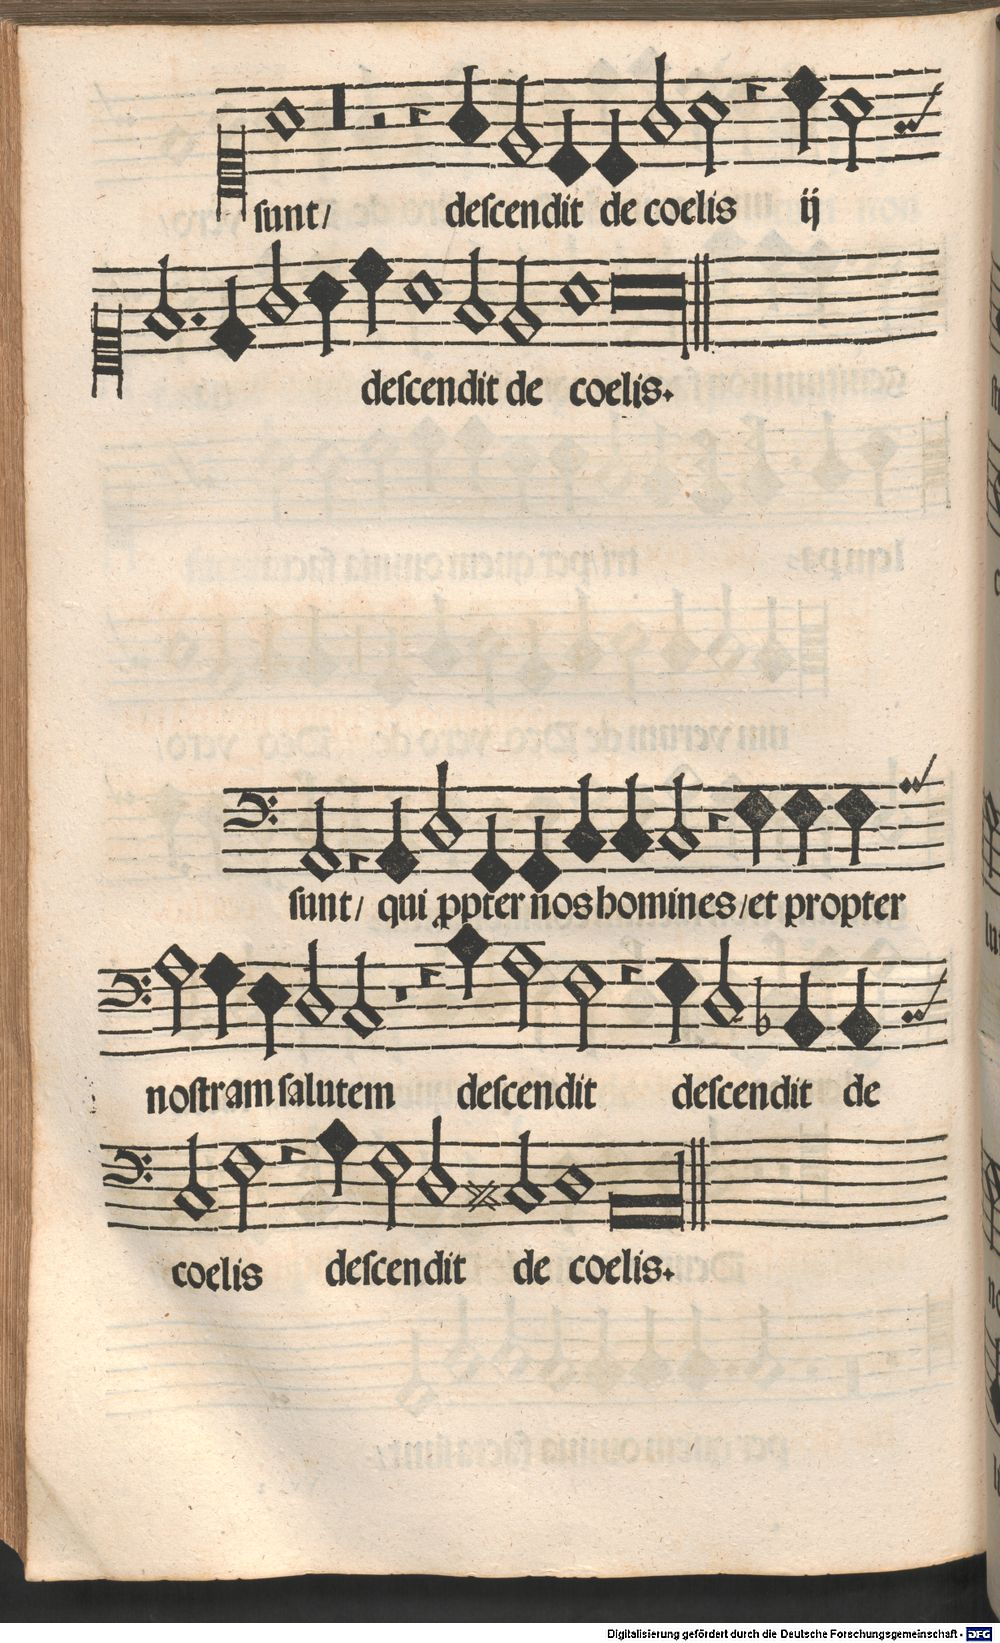 sunt/ descendit de coelis ij
descendit de coelis.
sunt/ qui ꝓpter nos homines/et propter
nostram salutem descendit descendit de
coelis descendit de coelis.
Digitalisierung gefördert durch die Deutsche Forschungsgemeinschaft - DFG